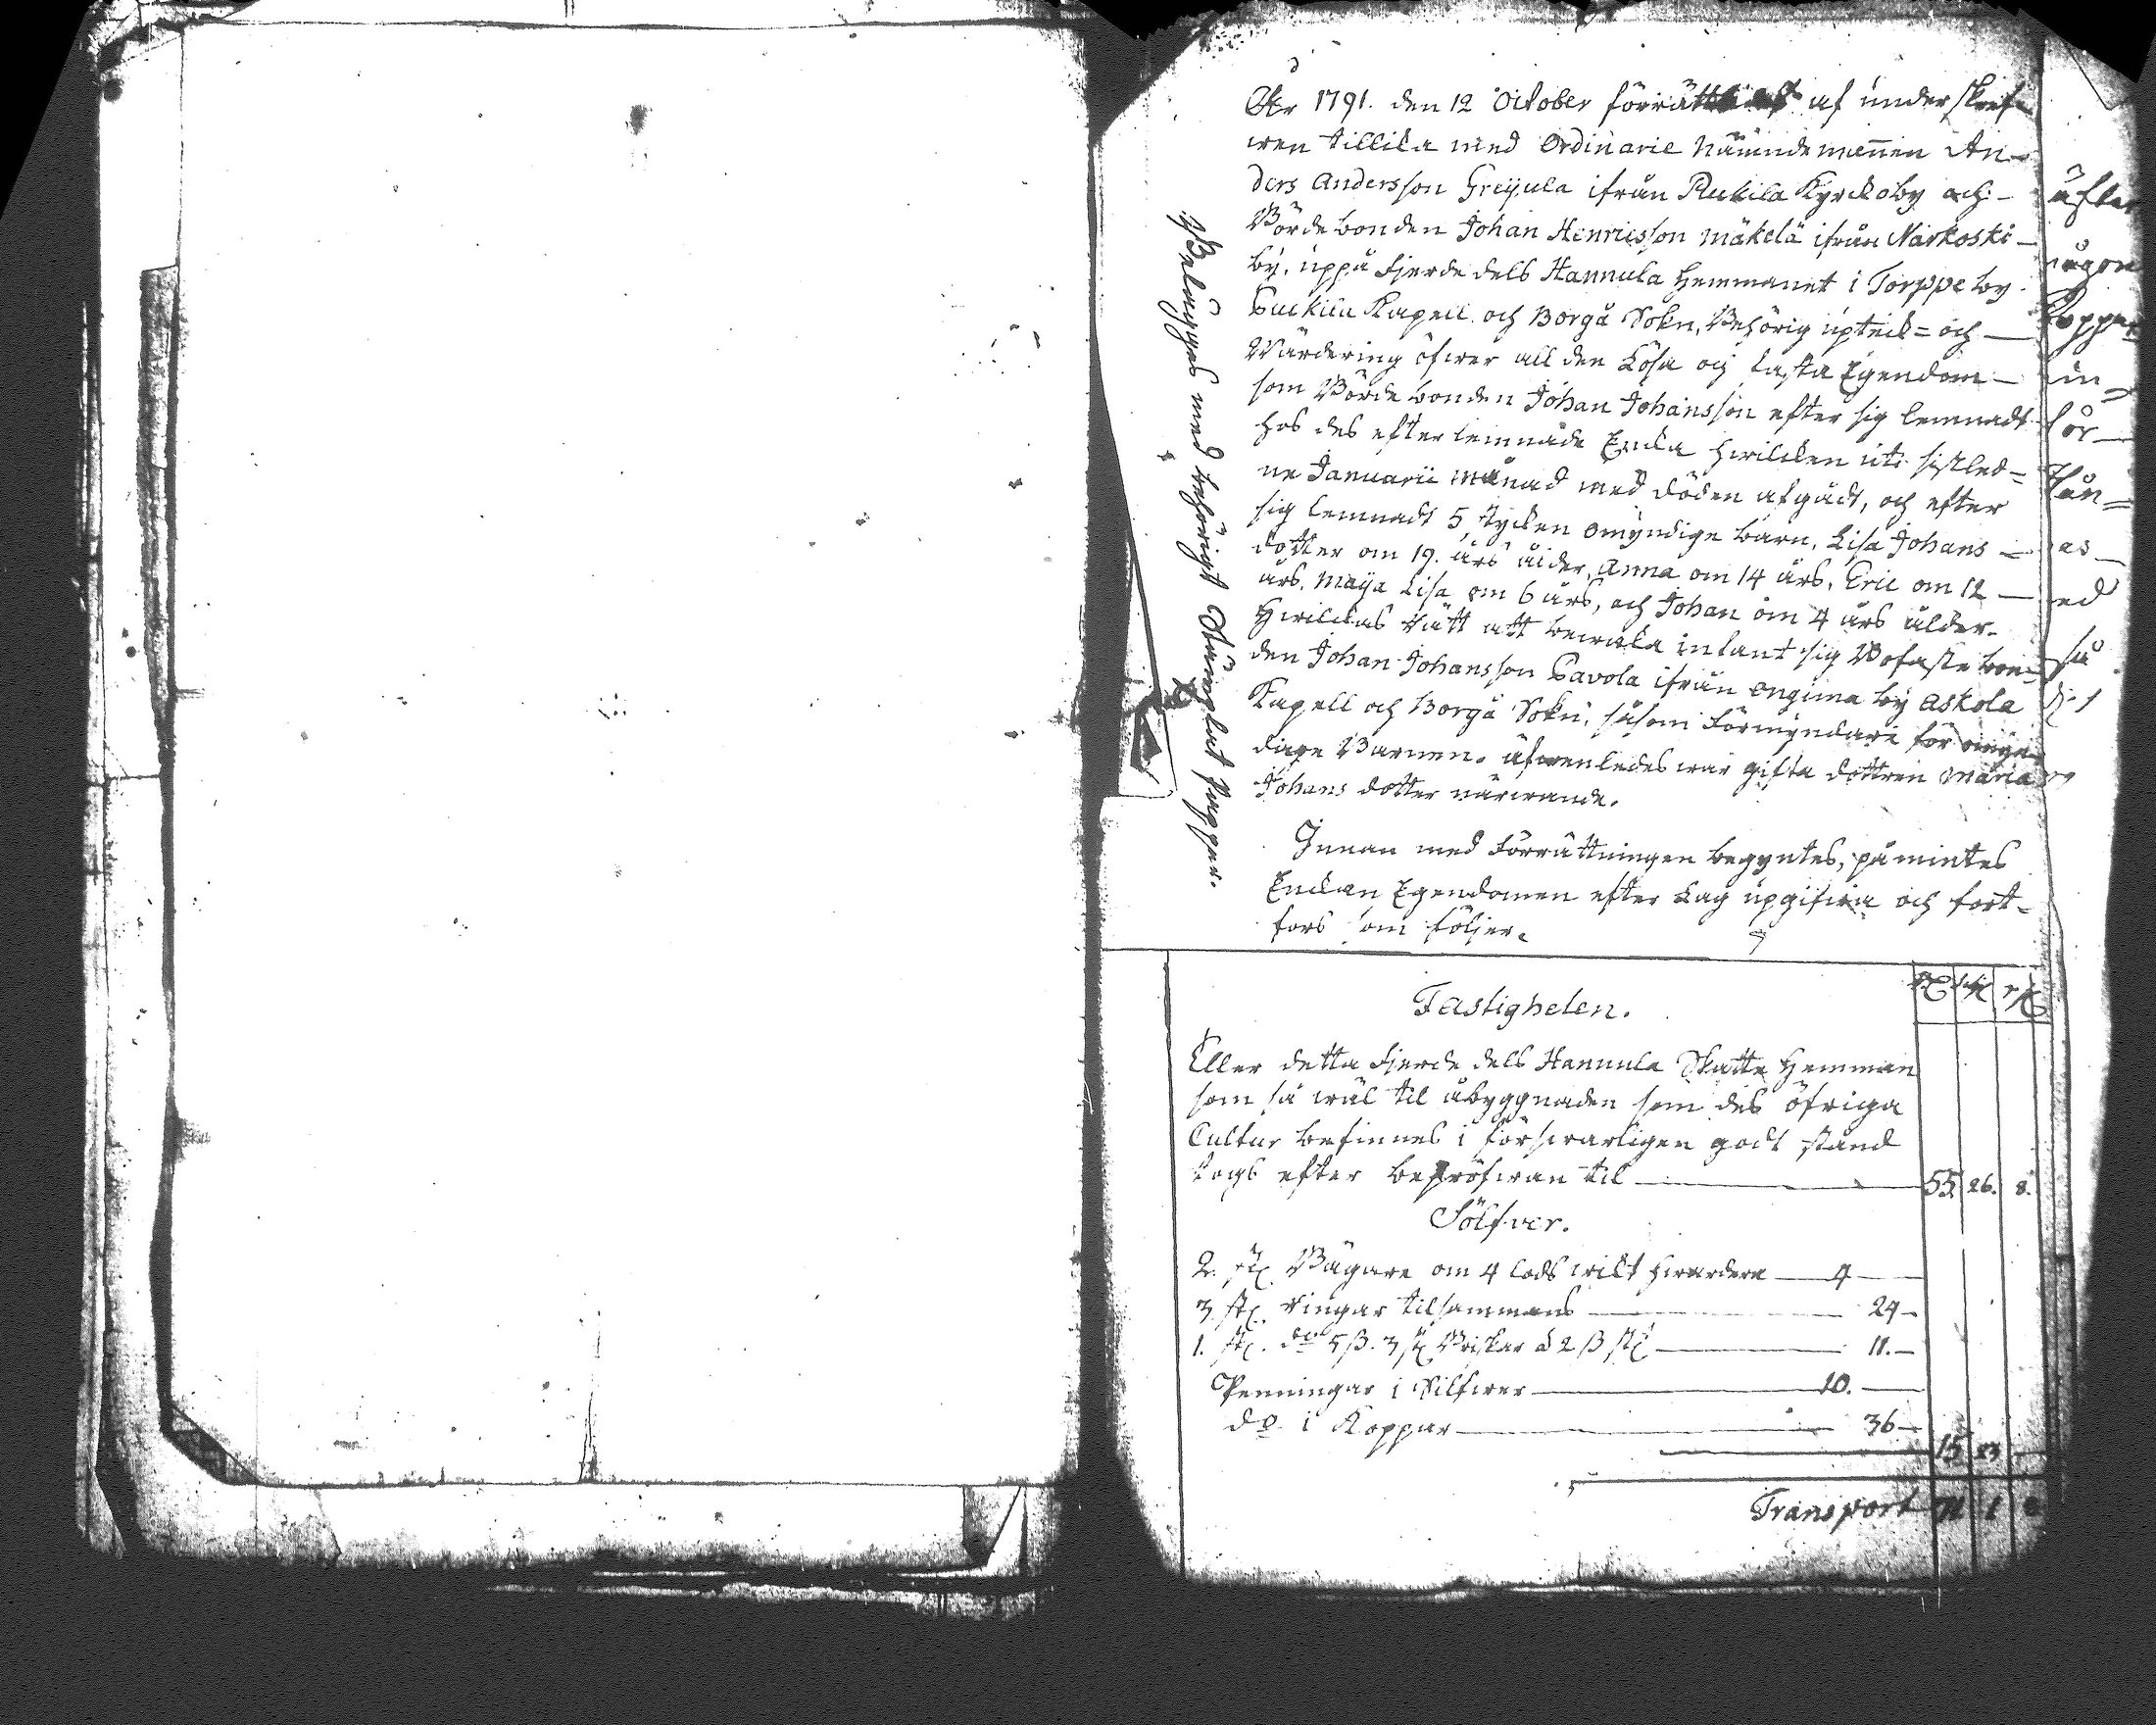 År 1791. den 12 October förrättades af underskref-
wen tillika med Ordinarie Nämndemannen An-
ders Andersson Greijula ifrån Pukila Kyrckoby och
Wördebonden Johan Henricsson Mäkelä ifrån Narkoski
by, uppå fjerde dels Hannula Hemmanet i Torppe by
Puckila Kapell och Borgå Sokn, Behörig upteck= och
Wärdering öfwer all den Lösa och fasta Egendom
som Wördebonden Johan Johansson efter sig lemnadt
hos des efterlemnade Encka hwilcken uti sistled=
ne Januarii månad med döden afgådt, och efter
sig lemnadt 5 stycken omyndige barn, Lisa Johans
dotter om 19. års ålder, Anna om 14 års, Eric om 12
års, Maija Lisa om 6 års, och Johan om 4 års ålder.
Hwilckas rätt att bewaka infant sig Bofaste bon-
den Johan Johansson Savola ifrån Ongima by Askola
Kapell och Borgå Sokn, såsom Förmyndare för omyn-
dige Barnen. äfwenledes war gifta dottren Maria
Johans dotter närwarande.
Innan med Förrättningen begyntes, påmintes
Enckan Egendomen efter Lag upgifwa och fort-
fors som följer.
Belägges med behörigt Stämplat papper.
Fastigheten.
Eller detta fjerde dels Hannula Skatte Hemman
som så wäl til åbyggnaden som des öfriga
Cultur befinnes i försvarligen godt stånd
togs efter bepröfwan til 55. 26. 8.
Sölfver.
2. st. Bägare om 4 lods wikt hwardera 4
3 st. ringar tilsammans 24
1. st. do 5 ß. 3 st Briskar à 2 ß st 11.
Penningar i Silfwer 10.
do i Koppar 36
15 23
Transport 71 1 8
efter
ågon
Koppar
in
för
ed
så